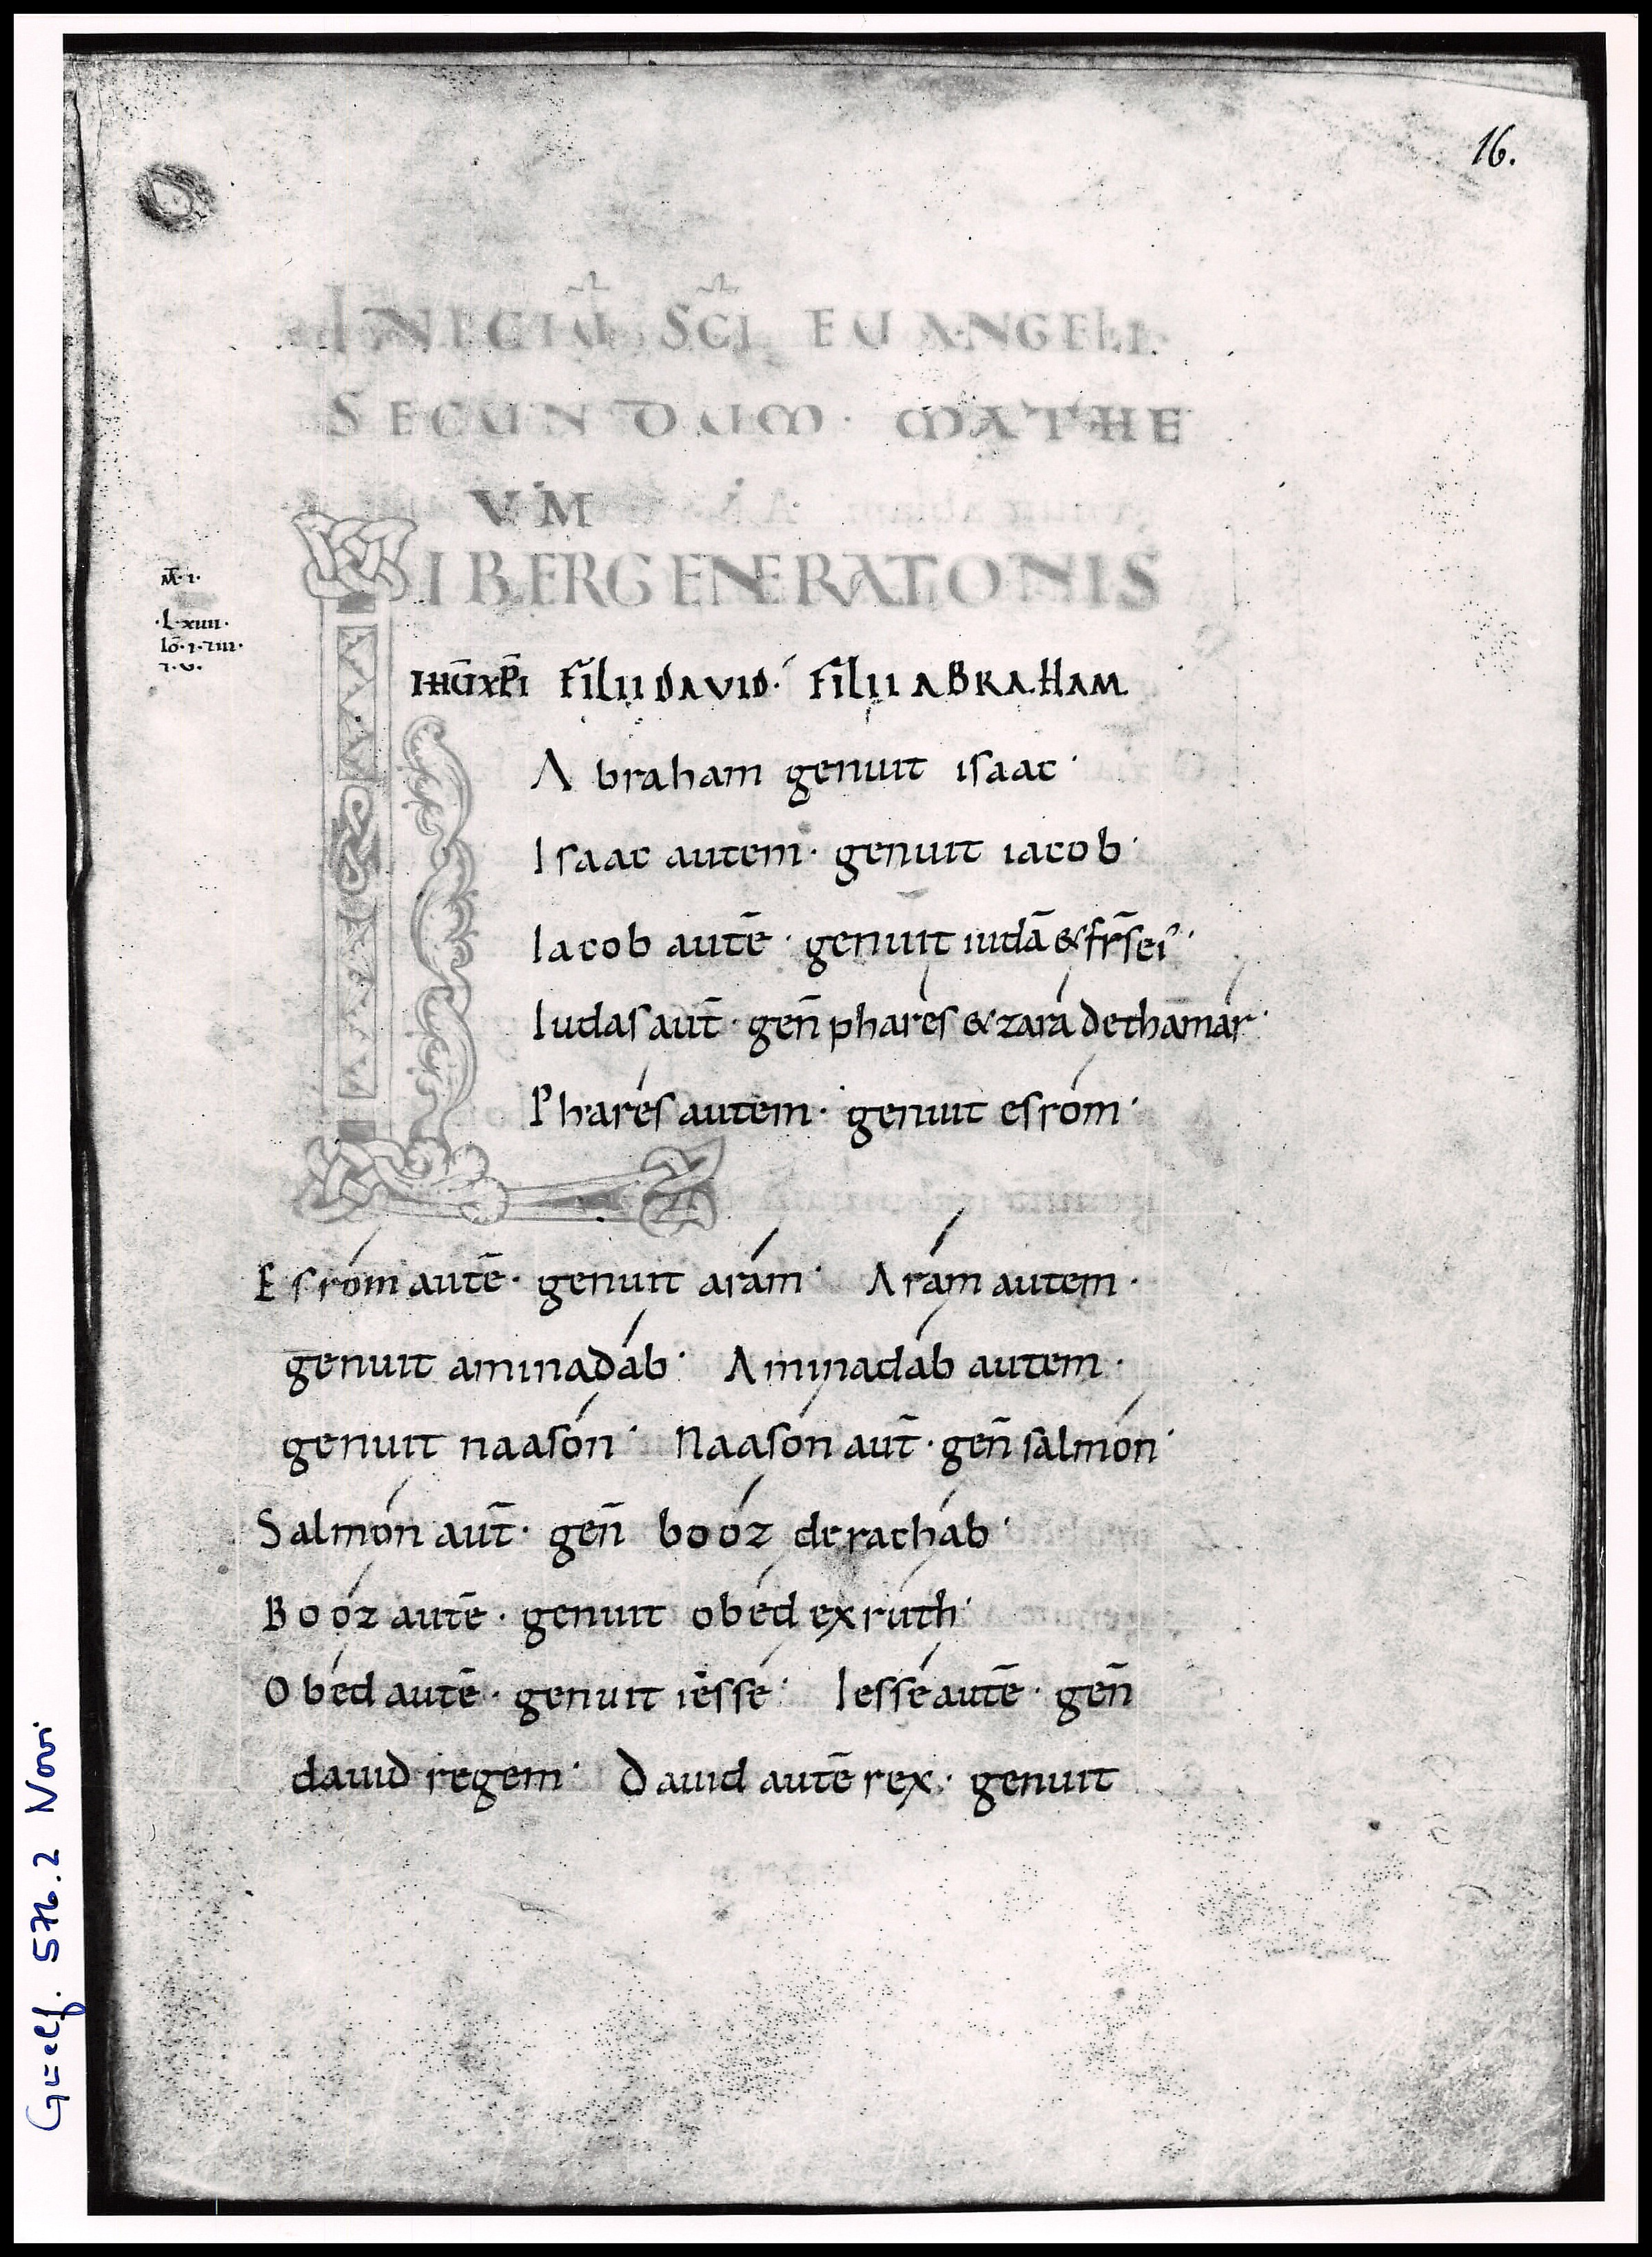 16.
INICIŪ SC̄I EUANGELI·
SECUNDUM· MATHE
VM
LIBERGENERATIONIS
M̄·I·
·L·XIIII·
Iō·I·⁊III·
⁊·V·
IHŪXP̄I FILII DAVID·́ FILII ABRAHAM
Abraham genuit isaac·
Isaac autem· genuit iacob·
Iacob autē· genuit iudā &fr̄s ei᾽·
Iudas aut̄· gen̄ pharés &zará dethamár·
Pharés autem· genuit esróm·
Esróm autē· genuit arám· Arám autem·
genuit aminadáb· Aminadáb autem·
genuit naasón· Naasón aut̄· gen̄ salmón·
Salmón aut̄· gen̄ boóz deracháb·
Boóz autē· genuit obéd exrúth·
Obéd autē· genuit iessé· Iessé autē· gen̄
dauid regem· Dauid autē rex· genuit
Guelf. 576.2 Novi